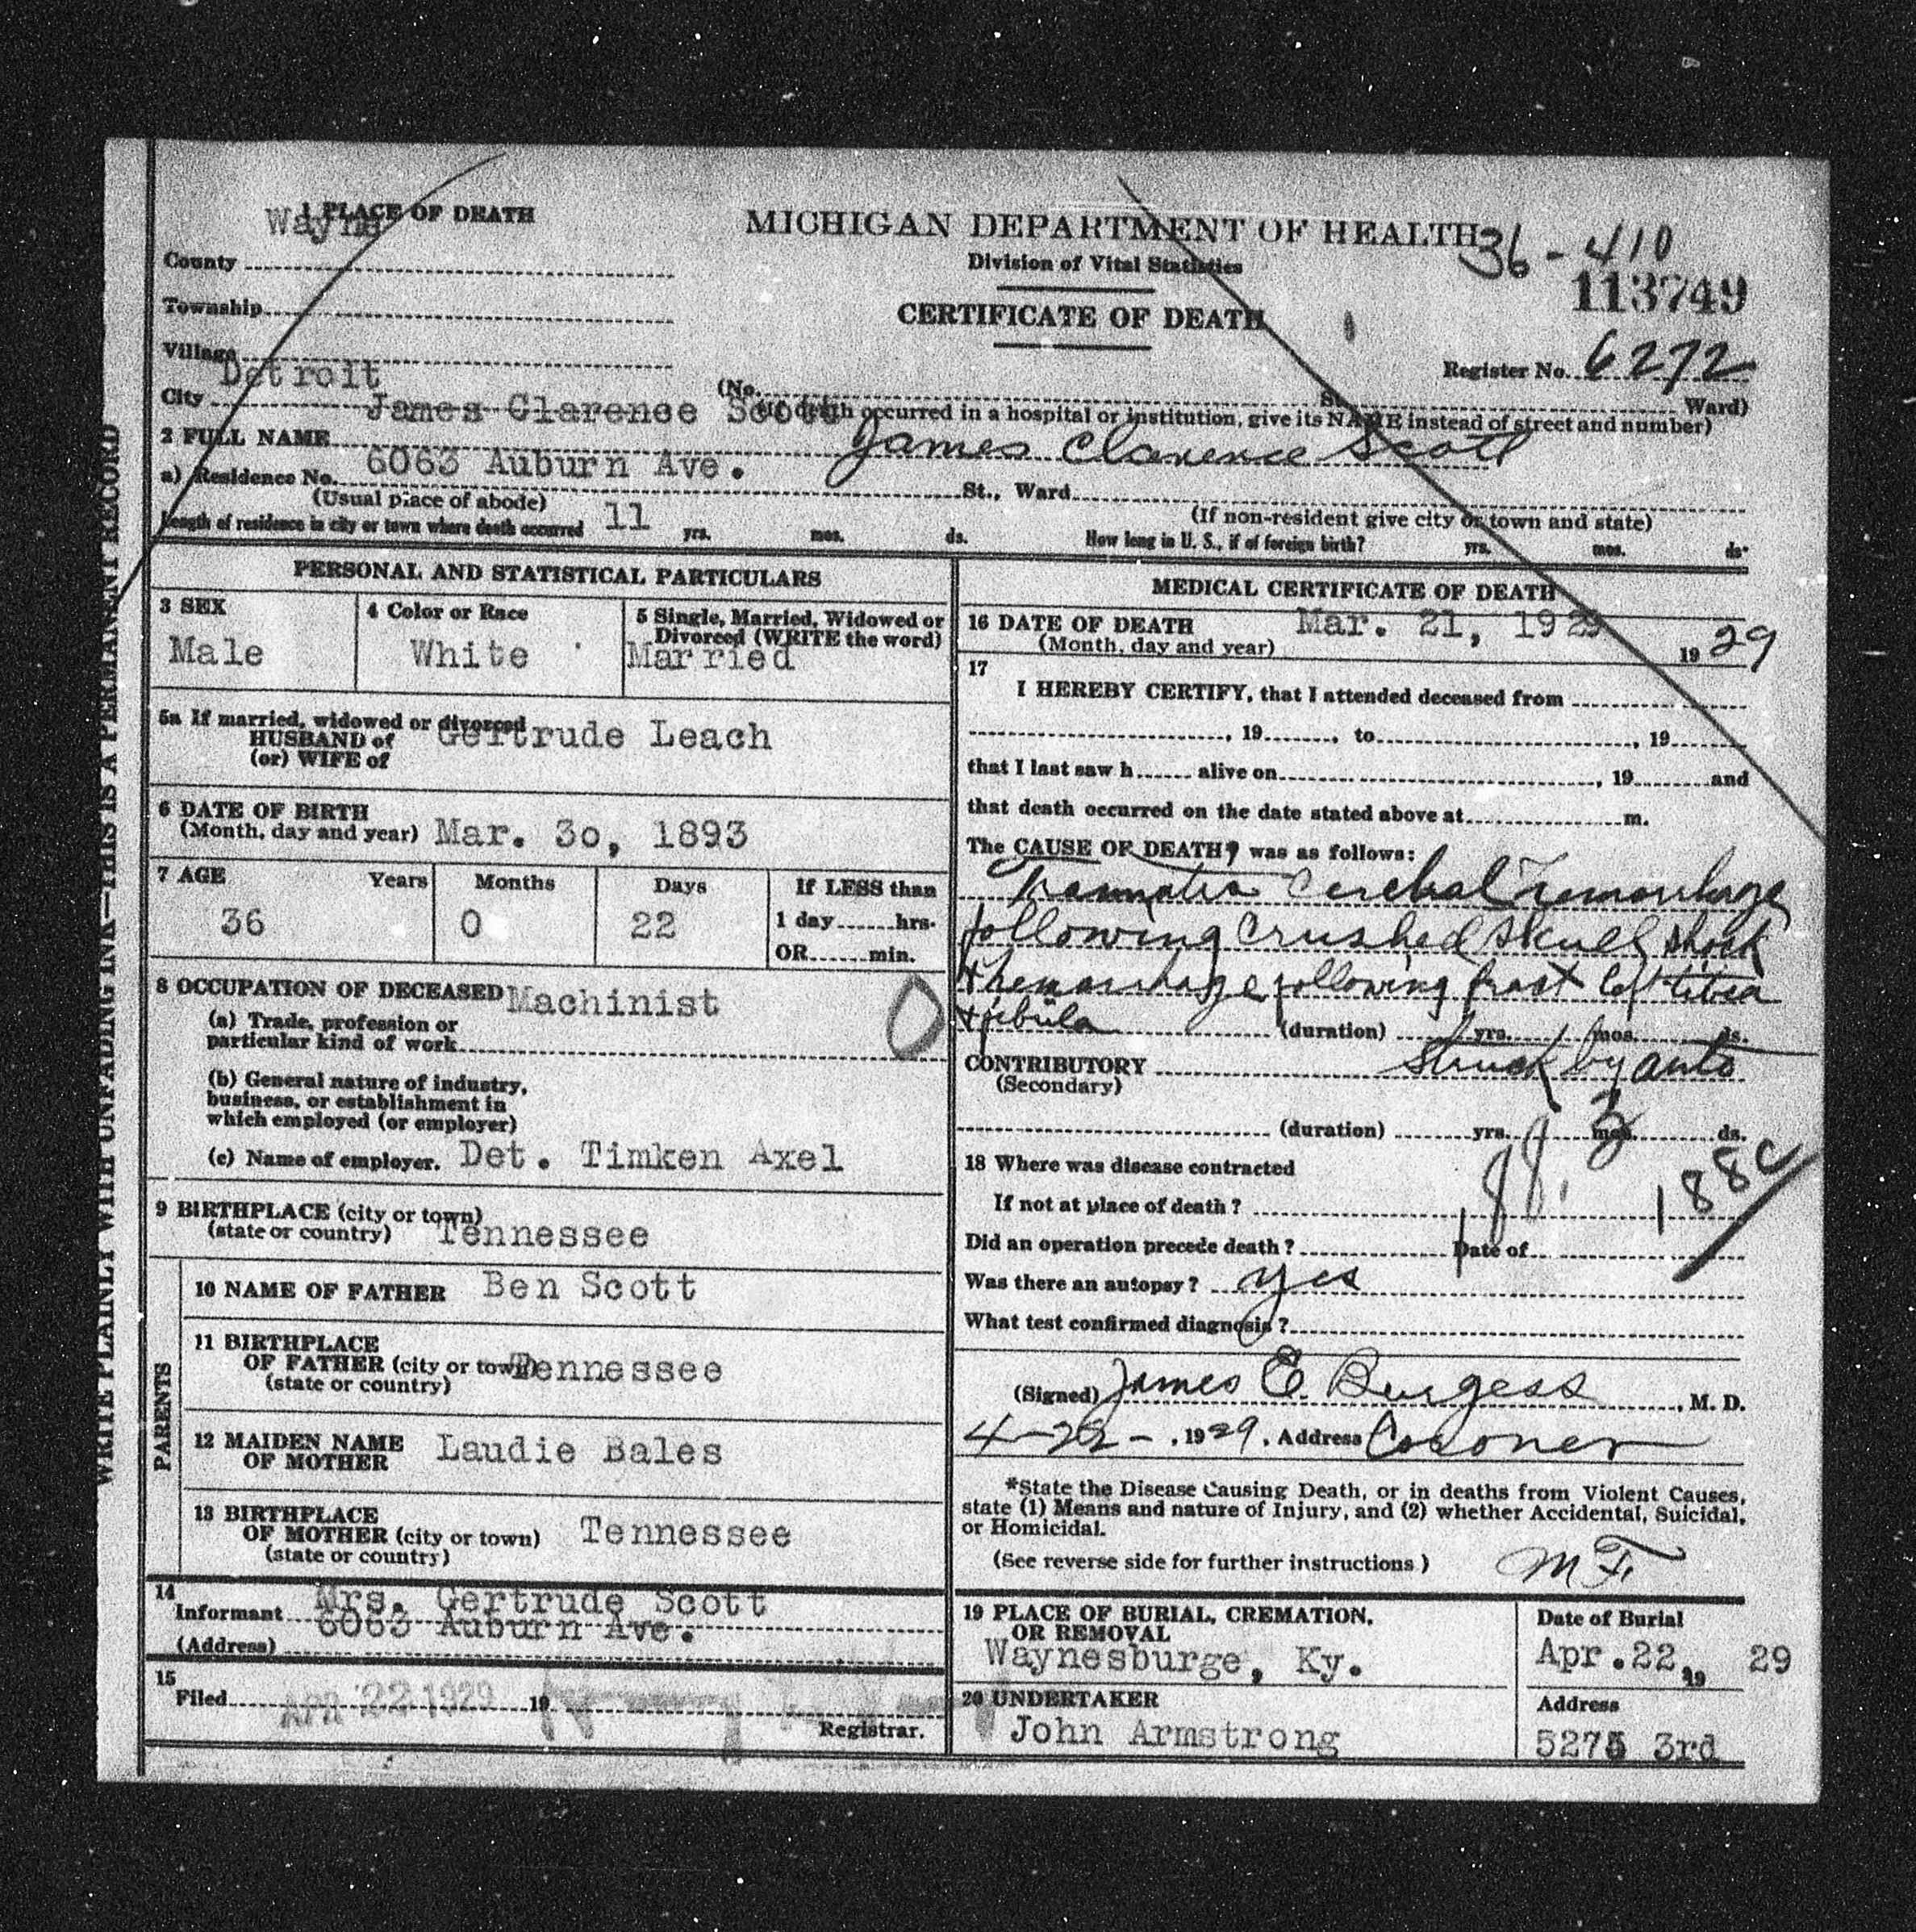 1 PLACE OF DEATH
Wayne
County
Township
Village
Detroit
City
MICHIGAN DEPARTMENT OF HEALTH
Division of Vital Statistics
CERTIFICATE OF DEATH
36-410
113749
Register No. 6272
(No. St. Ward)
(If death occurred in a hospital or institution, give its NAME instead of street and number)
James Clarence Scott
2 FULL NAME James Clarence Scott
a) Residence No. 6063 Auburn Ave. St., Ward
(Usual place of abode) (If non-resident give city or town and state)
Length of residence in city or town where death occurred 11 yrs. mos. ds. How long in U. S., if of foreign birth? yrs. mos. ds.
WRITE PLAINLY WITH UNFADING INK—THIS IS A PERMANENT RECORD
PERSONAL AND STATISTICAL PARTICULARS
3 SEX
Male
4 Color or Race
White
5 Single, Married, Widowed or
Divorced (WRITE the word)
Married
5a If married, widowed or divorced
HUSBAND of Gertrude Leach
(or) WIFE of
6 DATE OF BIRTH
(Month, day and year) Mar. 30, 1893
7 AGE Years Months Days If LESS than
36 0 22 1 day hrs.
OR min.
8 OCCUPATION OF DECEASED Machinist
(a) Trade, profession or
particular kind of work
(b) General nature of industry,
business, or establishment in
which employed (or employer)
(c) Name of employer. Det. Timken Axel
9 BIRTHPLACE (city or town)
(state or country) Tennessee
PARENTS
10 NAME OF FATHER Ben Scott
11 BIRTHPLACE
OF FATHER (city or town) Tennessee
(state or country)
12 MAIDEN NAME
OF MOTHER Laudie Bales
13 BIRTHPLACE
OF MOTHER (city or town) Tennessee
(state or country)
14
Informant Mrs. Gertrude Scott
6063 Auburn Ave.
(Address)
15
Filed Apr 22 1929 19
Registrar.
MEDICAL CERTIFICATE OF DEATH
16 DATE OF DEATH Mar. 21, 1929
(Month, day and year) 19 29
17
I HEREBY CERTIFY, that I attended deceased from
, 19 , to , 19
that I last saw h alive on , 19 and
that death occurred on the date stated above at m.
The CAUSE OF DEATH* was as follows:
Traumatic Cerebral Hemorrhage
following crushed skull shock
& hemorrhage following fract left tibia
& fibula (duration) yrs. mos. ds.
CONTRIBUTORY struck by auto
(Secondary)
(duration) yrs. mos. ds.
18 Where was disease contracted
If not at place of death?
188c
Did an operation precede death? Date of
Was there an autopsy? yes
What test confirmed diagnosis?
(Signed) James E. Burgess, M. D.
4-22-, 1929, Address Coroner
*State the Disease Causing Death, or in deaths from Violent Causes,
state (1) Means and nature of Injury, and (2) whether Accidental, Suicidal,
or Homicidal.
(See reverse side for further instructions)
19 PLACE OF BURIAL, CREMATION,
OR REMOVAL
Waynesburge, Ky.
Date of Burial
Apr.22, 19 29
20 UNDERTAKER
John Armstrong
Address
5275 3rd